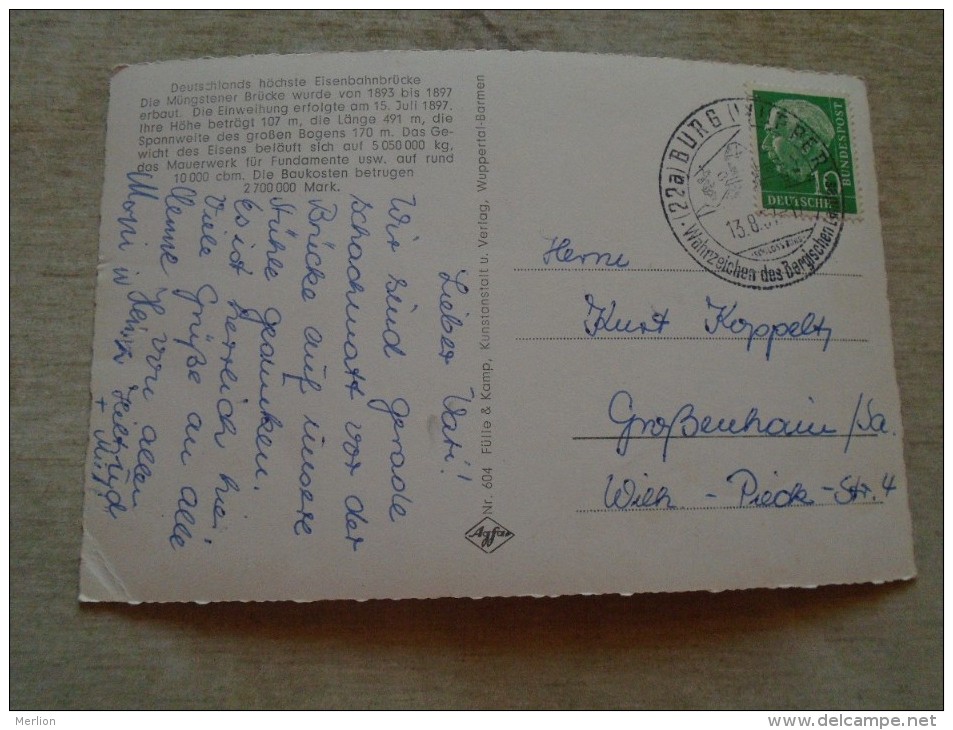 Deutschlands höchste Eisenbahnbrücke
Die Müngstener Brücke wurde von 1893 bis 1897
erbaut. Die Einweihung erfolgte am 15. Juli 1897.
Ihre Höhe beträgt 107 m, die Länge 491 m, die
Spannweite des großen Bogens 170 m. Das Ge-
wicht des Eisens beläuft sich auf 5 050 000 kg,
das Mauerwerk für Fundamente usw. auf rund
10 000 cbm. Die Baukosten betrugen
2 700 000 Mark.
Lieber Vati!
Wir sind gerade
schachmatt vor der
Brücke auf unsere
Stühle gesunken.
Es ist herrlich hier
Viele Grüße an alle
von allen
+ Mutti
Nr. 604 Fülle & Kamp, Kunstanstalt u. Verlag, Wuppertal-Barmen
Agfa
(22a) BURG (WUPPER)
13.8.57
Wahrzeichen des Bergischen
10
DEUTSCHE
BUNDESPOST
Herrn
Kurt Koppeltz
Großenhain/Sa.
Wilh-Pieck-Str. 4
Merlion
www.delcampe.net